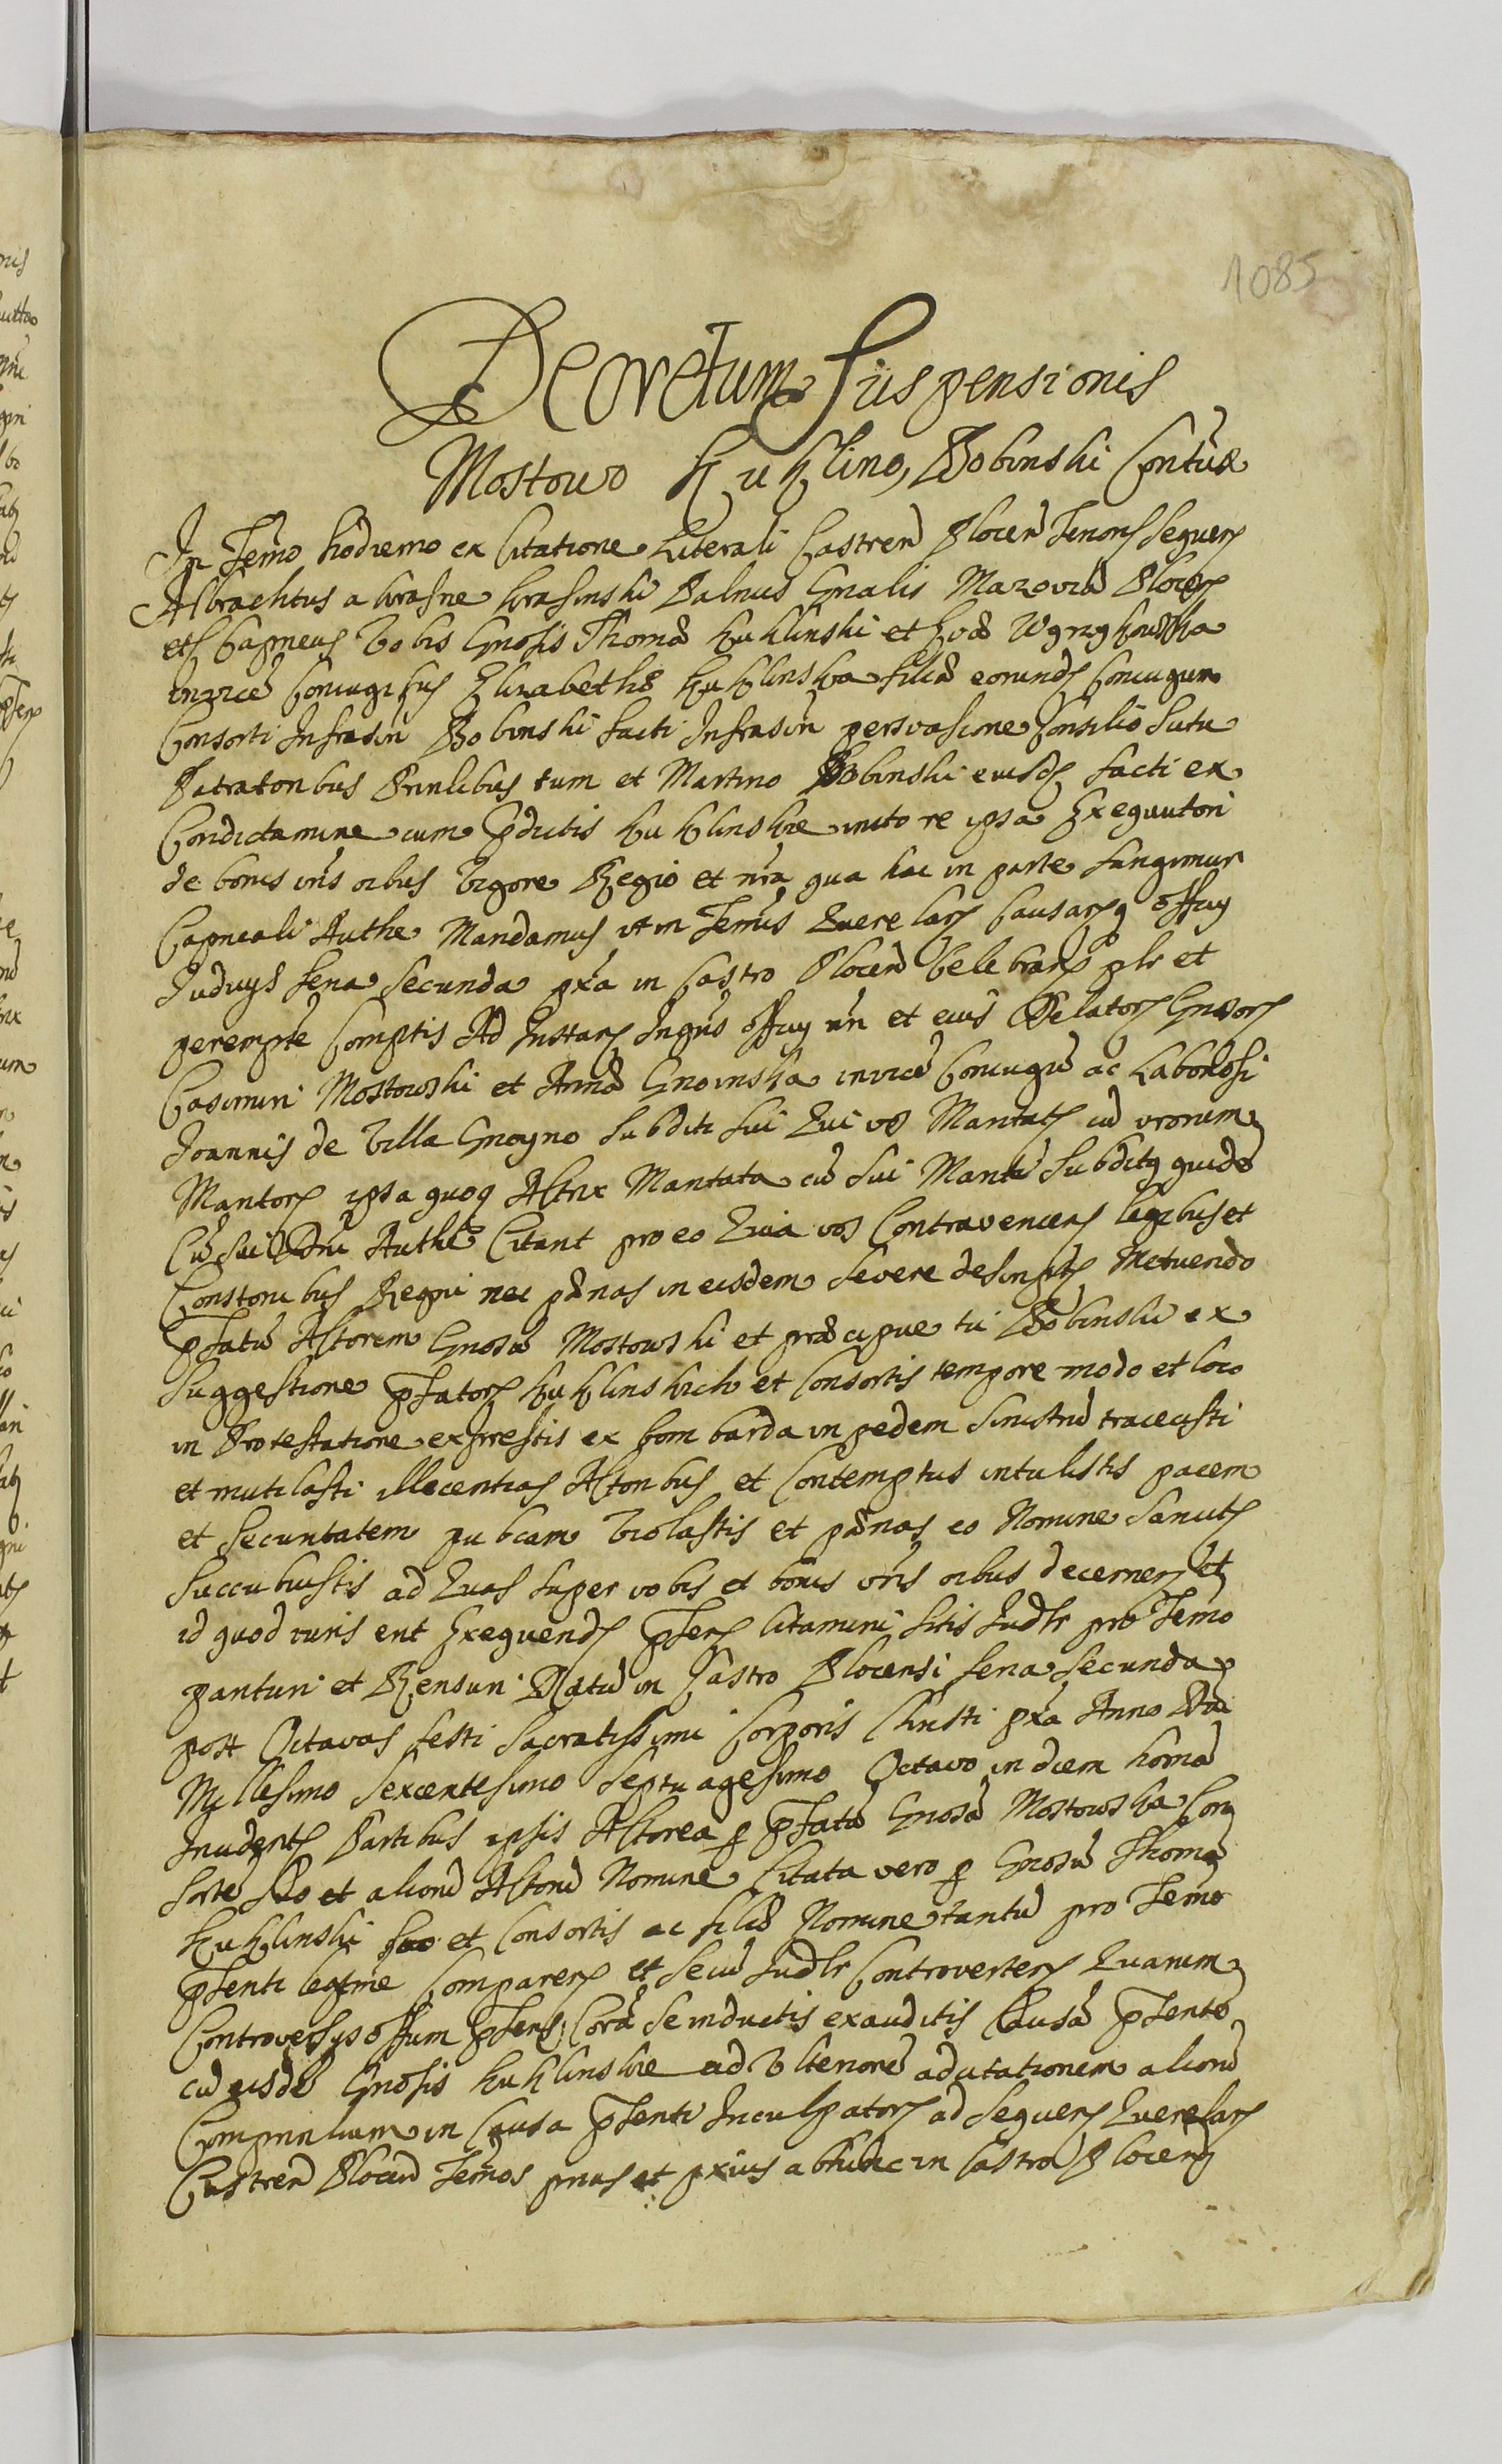 1085
Decretum Suspensionis
Mostowo Kuklino, Bobinski Contuā
In Termo hodierno ex Citatione Literali Castren Plocen Tenoris Sequen
Albrachtus a Krasne Krasinski Palnus Gnalis Mazoviæ Plocen
etc Capneus Vobis Gnosis Thomæ Kuklinski et Evæ
invice Coniugibus Elizabethæ Kuklinska filiæ eorund Coniugum
Consorti Infrascri Bobinski facti Infrascri persvasione Consilio Sutu
Patratoribus Prinlibus tum et Martino Bobinski eiusd facti ex
Condictamine cum pdictis Kuklinskie inito re ipsa Exequutori
de bonis vris oibus Vigore Regio et nra qua hac in parte fungimur
Capneali Authe Mandamus ut in Termis Querelar Causarq Offcy
Iudicys feria Secunda pxa in Castro Plocen Celebran plr et
perempte Comptis Ad Instar Ingnis offcy nri et eius Delator Gnosor
Casimiri Mostowski et Annæ Gnoinska invice Coniugu ac Laboriosi
Joannis de Villa Gnoyno Subditi Sui Qui vos Mantat cu vrorum
Mantor ipsa quoq Actrix Mantata cu Sui Mariti Subditq quide
Cu Sui Dni Authe Citant pro eo Quia vos Contravenien legibus et
Constonibus Regni nec pænas in eisdem Severe descript Metuendo
pfatu Actorem Gnosu Mostowski et præcipue tu Bobinski ex
Suggestione pfator Kuklinskich et Consortis tempore modo et loco
in Protestatione expressis ex bombarda in pedem Sinistru traiecisti
et mutilasti illecentias Actoribus et Contemptus intulistis pacem
et Securitatem pubcam Violastis et pænas eo Nomine Sancit
Succubuistis ad Quas Super vobis et bonis vris oibus decernen et
id quod iuris erit Exequend psen Citamini Sitis Iudlr pro Termo
parituri et Rensuri Datu in Castro Plocensi feria Secunda
post Octavas festi Sacratissimi Corporis Christi pxa Anno Dni
Millesimo Sexcentesimo Septuagesimo Octavo in diem horna
Inciden Partibus ipsis Actorea p pfata Gnosa Mostowska Con
sorte Suo et alioru Actoru Nomine Citata vero p Gnosu Thoma
Kuklinski suo et Consortis ac filiæ Nomine tantu pro Termo
psenti legitime Comparen et Secu Iudlr Controverten Quarum
Controversys Offum psens Cora Se inductis exauditis Causa psente
cu eisde Gnosis Kuklinskie ad Ulteriore adcitationem alioru
Comprinlium in Causa psenti Inculpator ad Sequen Querelar
Castren Plocen Termos prius et pxius abhinc in Castro Plocen